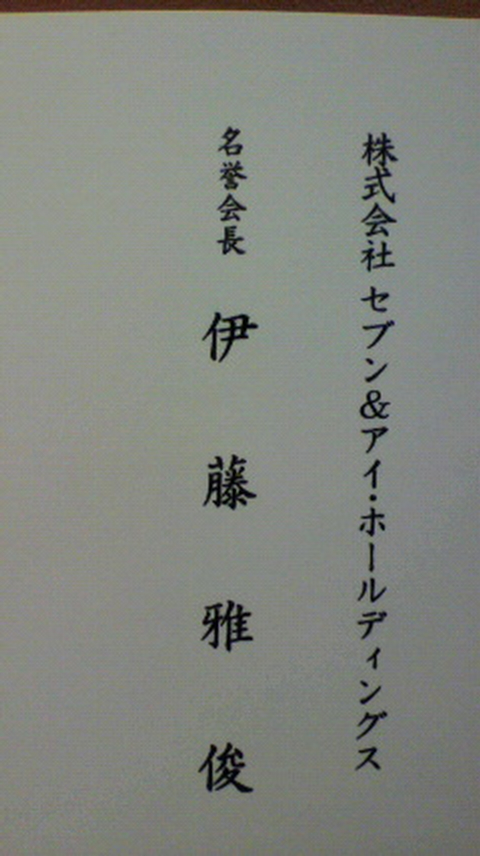 株式会社 セブン&アイ・ホールディングス
名誉会長 伊藤雅俊